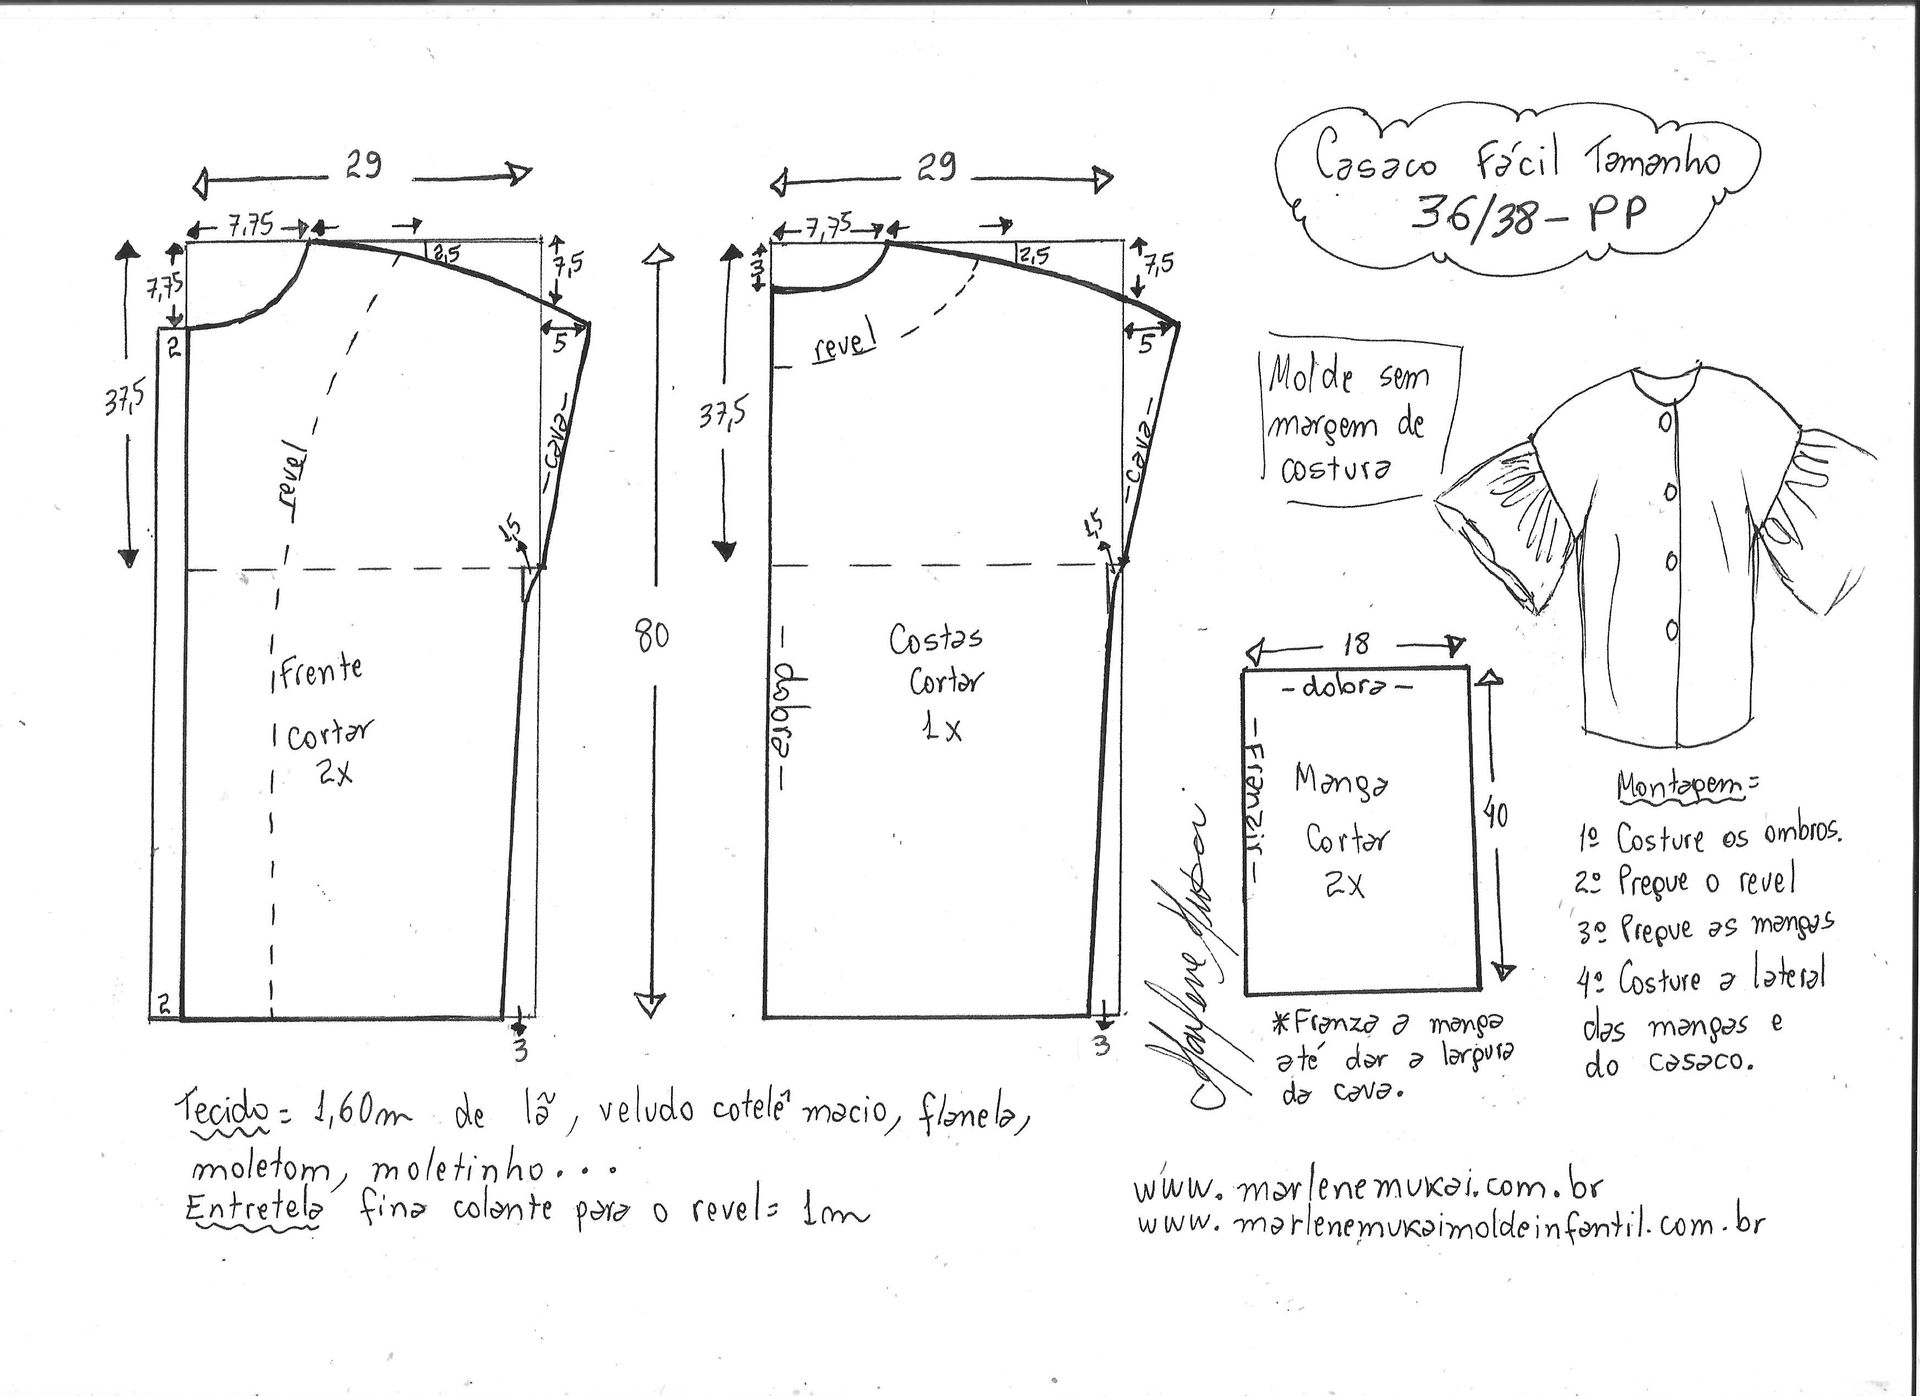 Casaco Fácil Tamanho
36/38 - PP
29
7,75
2,5
7,5
7,75
2
5
37,5
revel
-cava-
1,5
Frente
Cortar
2x
2
3
80
29
7,75
2,5
7,5
3
5
37,5
revel
-cava-
1,5
-dobra-
Costas
Cortar
1x
3
Molde sem
margem de
costura
18
-dobra-
-Franzir-
Manga
Cortar
2x
40
*Franza a manga
até dar a largura
da cava.
Marlene Mukai
Montagem=
1º Costure os ombros.
2º Pregue o revel
3º Pregue as mangas
4º Costure a lateral
das mangas e
do casaco.
Tecido= 1,60m de lã, veludo cotelê macio, flanela,
moletom, moletinho...
Entretela fina colante para o revel= 1m
www.marlenemukai.com.br
www.marlenemukaimoldeinfantil.com.br